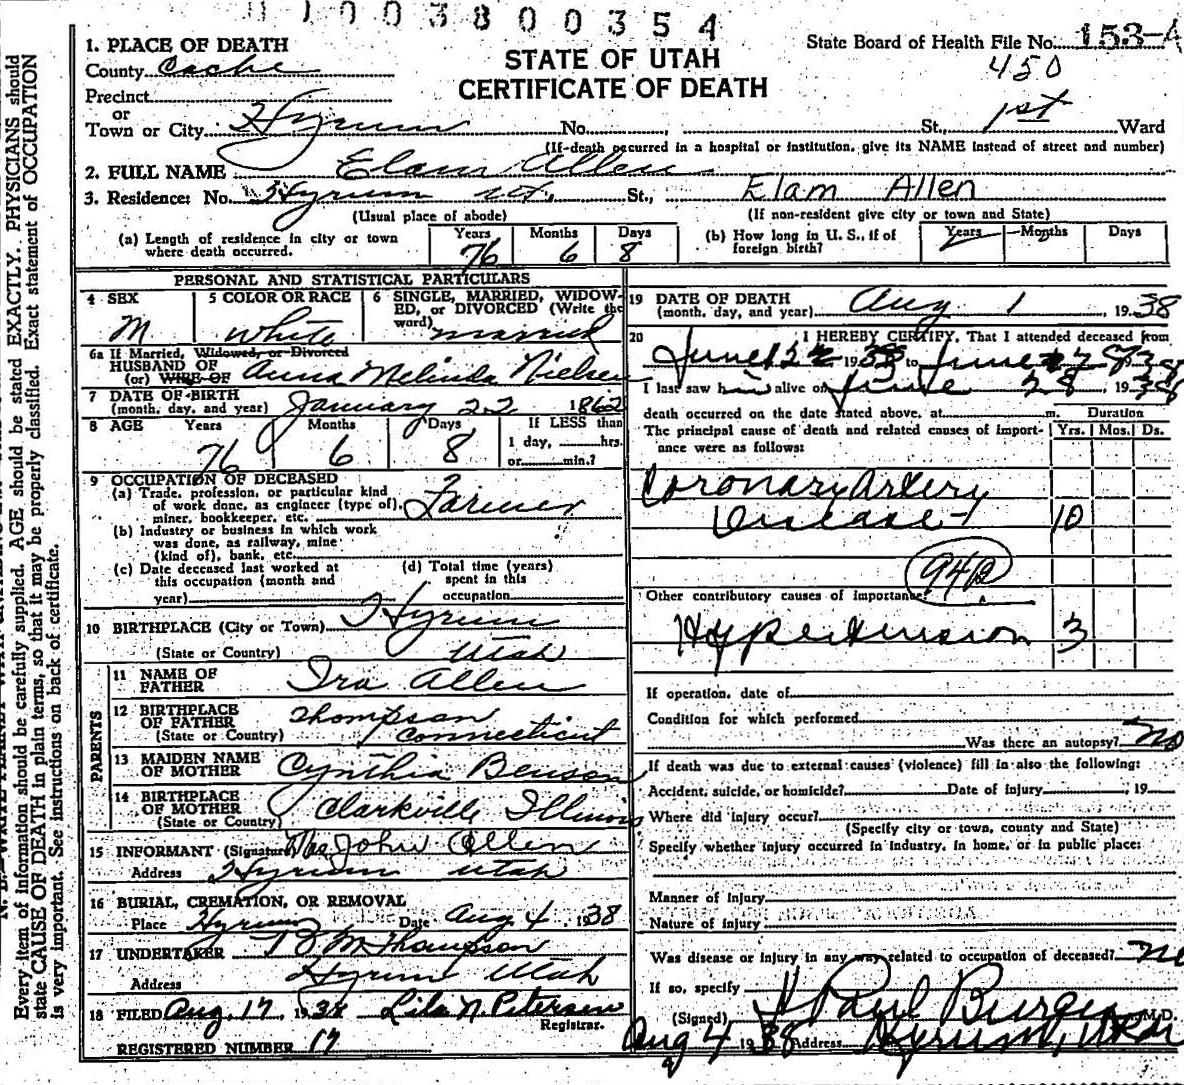 1003800354
State Board of Health File No. 153-A
450
STATE OF UTAH
CERTIFICATE OF DEATH
1. PLACE OF DEATH
County Cache
Precinct
or
Town or City Hyrum No. St., 1st Ward
(If death occurred in a hospital or institution, give its NAME instead of street and number)
2. FULL NAME Elam Allen
3. Residence: No. Hyrum Ut. St., Elam Allen
(Usual place of abode) (If non-resident give city or town and State)
(a) Length of residence in city or town where death occurred. Years 76 Months 6 Days 8
(b) How long in U. S., if of foreign birth? Years Months Days
PERSONAL AND STATISTICAL PARTICULARS
4 SEX M
5 COLOR OR RACE White
6 SINGLE, MARRIED, WIDOWED, or DIVORCED (Write the word) married
6a If Married, Widowed, or Divorced
HUSBAND OF
(or) WIFE OF Anna Melinda Nielsen
7 DATE OF BIRTH
(month, day, and year) January 22 1862
8 AGE Years 76 Months 6 Days 8
If LESS than
1 day, hrs.
or min.?
9 OCCUPATION OF DECEASED
(a) Trade, profession, or particular kind
of work done, as engineer (type of),
miner, bookkeeper, etc. Farmer
(b) Industry or business in which work
was done, as railway, mine
(kind of), bank, etc.
(c) Date deceased last worked at
this occupation (month and
year)
(d) Total time (years)
spent in this
occupation
10 BIRTHPLACE (City or Town) Hyrum
(State or Country) Utah
PARENTS
11 NAME OF
FATHER Ira Allen
12 BIRTHPLACE
OF FATHER Thompson
(State or Country) Connecticut
13 MAIDEN NAME
OF MOTHER Cynthia Benson
14 BIRTHPLACE
OF MOTHER Clarkville Illinois
(State or Country)
15 INFORMANT (Signature) Mrs John Allen
Address Hyrum Utah
16 BURIAL, CREMATION, OR REMOVAL
Place Hyrum Date Aug 4, 1938
17 UNDERTAKER M Thompson
Address Hyrum Utah
18 FILED Aug. 17, 1938 Lila N. Petersen
Registrar.
REGISTERED NUMBER 17
19 DATE OF DEATH
(month, day, and year) Aug 1, 1938
20 I HEREBY CERTIFY, That I attended deceased from
June 19 to June
I last saw h alive on June 28, 19
death occurred on the date stated above, at m.
Duration
The principal cause of death and related causes of importance were as follows:
Yrs. Mos. Ds.
Coronary Artery
Disease 10
Other contributory causes of importance:
Hypertension 3
If operation, date of
Condition for which performed
Was there an autopsy? No
If death was due to external causes (violence) fill in also the following:
Accident, suicide, or homicide? Date of injury , 19
Where did injury occur?
(Specify city or town, county and State)
Specify whether injury occurred in industry, in home, or in public place:
Manner of injury
Nature of injury
Was disease or injury in any way related to occupation of deceased? No
If so, specify
(Signed) Paul Burgess M.D.
Aug 4 1938 Address Hyrum, Utah
Every item of information should be carefully supplied. AGE should be stated EXACTLY. PHYSICIANS should
state CAUSE OF DEATH in plain terms, so that it may be properly classified. Exact statement of OCCUPATION
is very important. See instructions on back of certificate.